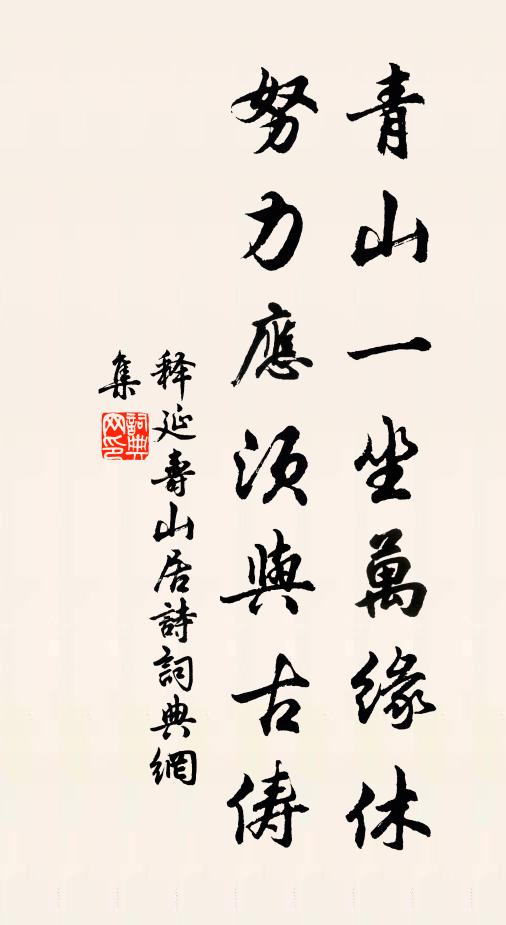 青山一坐萬緣休
努力應須與古儔
释延壽山居詩詞典網
集
詞典網印